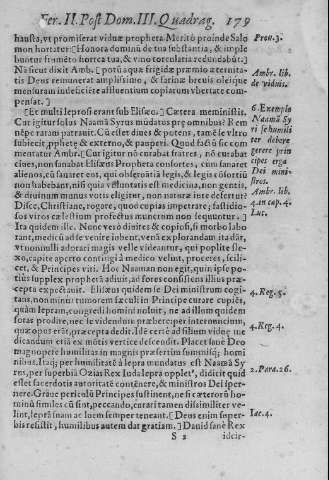 Fer. II. Post Dom. III. Quadrag. 179
hausta, vt promiserat viduæ propheta. Meritò proinde Salo
mon hortatur: [Honora dominũ de tua substantia, & imple
buntur frumẽto horrea tua, & vino torcularia redundabũt.]
Nã sicut dixit Amb. [ potũ aquæ frigidæ præmio æternita-
tis Deus remunerat amplissimo, & farinæ breuis oleique
mensuram indeficiẽte affluentium copiarum vbertate com
pensat.]
Et multi leprosi erant sub Eliseo.] Cætera meministis.
Cur igitur solus Naamã Syrus mũdatus præ omnibus? Rem
nẽpe raram patrauit. Cũ esset diues & potens, tamẽ se vltro
subiecit, pphetę & externo, & pauperi. Quod factũ sic com
mentatur Ambr. [Cur igitur nõ curabat fratres, nõ curabat
ciues, non sanabat Eliseus Propheta consortes, cum sanaret
alienos, cũ sanaret eos, qui obseruãtiã legis, & legis cõsortiũ
non habebant, nisi quia vsluntatis est medicina, non gentis,
& diuinum munus votis eligitur, non naturæ iure defertur?
Disce, Christiane, rogare, quod cupias impetrare; fastidio-
sos viros cælestium profectus munerum non sequuntur. ]
Ita quidem ille. Nunc verò diuites & copiosi, si morbo labo
rant, medicũ ad se venire inbent, venã explorandam ita dãt,
vt nonnulli adorari magis velle videantur, qui poplite fle-
xo, capite aperto contingi à medico velint, proceres, scili-
cet, & Principes viti. Hoc Naaman non egit, quin ipse po-
tiùs supplex prophetã adiuit, ad fores consistens illius præ-
cepta expectauit. Elisæus quidem ie Dei ministrum cogi-
tans, non minùs tumorem fa cultũ in Principe curare cupiẽs,
quàm lepram, congredi homini noluit, ne ad illum quidem
foras prodire, nec se videndum præbere; per internuncium,
quæ opus erãt, præcepta dedit. Idẽ certè ad filium viduę me
dicandum etiã ex mõtis vertice descendit. Placet sanè Deo
magnopere humilitas in magnis præsertim summisq; homi
nibus. Itaq; per humilitatẽ à lepra mundatus est Naamã Sy
rus, per superbiã Ozias Rex Iuda lepra opplet', didicit quid
esset sacerdotis autoritatẽ contẽnere, & ministros Dei sper-
nere. Graue periculũ Principes sustinent, ne si cæterorũ ho-
minũ similes cũ sint, peccando, curari tamen dissimiliter ve-
lint, lepræ sanæ ac luem semper teneant. [Deus enim super-
bis resistit, humilibus autem dat gratiam.] Dauid sanè Rex
S 2 idcir-
Prou. 3.
Ambr. lib.
de viduis.
6. Exemplo
Naamã Sy
ri se humili
ter debere
gerere prin
cipes erga
Dei mini-
stros.
Ambr. lib.
4. in cap. 4.
Luc.
4. Reg. 5.
4. Reg. 4.
2. Para. 26.
Iac. 4.